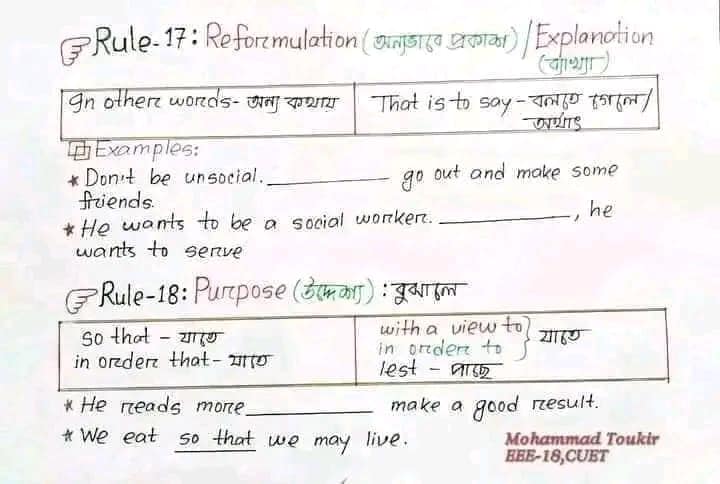 Rule-17: Reformulation (অন্যভাবে প্রকাশ) / Explanation
(ব্যাখ্যা)
In other words - অন্য কথায়
That is to say - বলতে গেলে/
অর্থাৎ
Examples:
* Don't be unsocial. __________ go out and make some
friends.
* He wants to be a social worker. __________, he
wants to serve
Rule-18: Purpose (উদ্দেশ্য) : বুঝালে
so that - যাতে
in order that - যাতে
with a view to
in order to } যাতে
lest - পাছে
* He reads more __________ make a good result.
* We eat so that we may live.
Mohammad Toukir
EEE-18,CUET